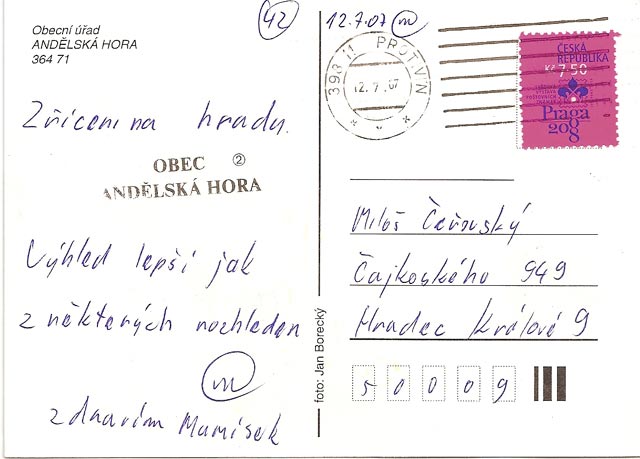 Obecní úřad
ANDĚLSKÁ HORA
364 71
42
12.7.07 m
398 11 PROTIVÍN
12. 7. 07
ČESKÁ
REPUBLIKA
Kč 7,50
SVĚTOVÁ
VÝSTAVA
POŠTOVNÍCH
ZNÁMEK
Praga
2008
Zřícenina hradu.
OBEC 2
ANDĚLSKÁ HORA
Výhled lepší jak
z některých rozhleden
m
zdravím Mamisek
foto: Jan Borecký
Miloš Čeřovský
Čajkoského 949
Hradec Králové 9
50009